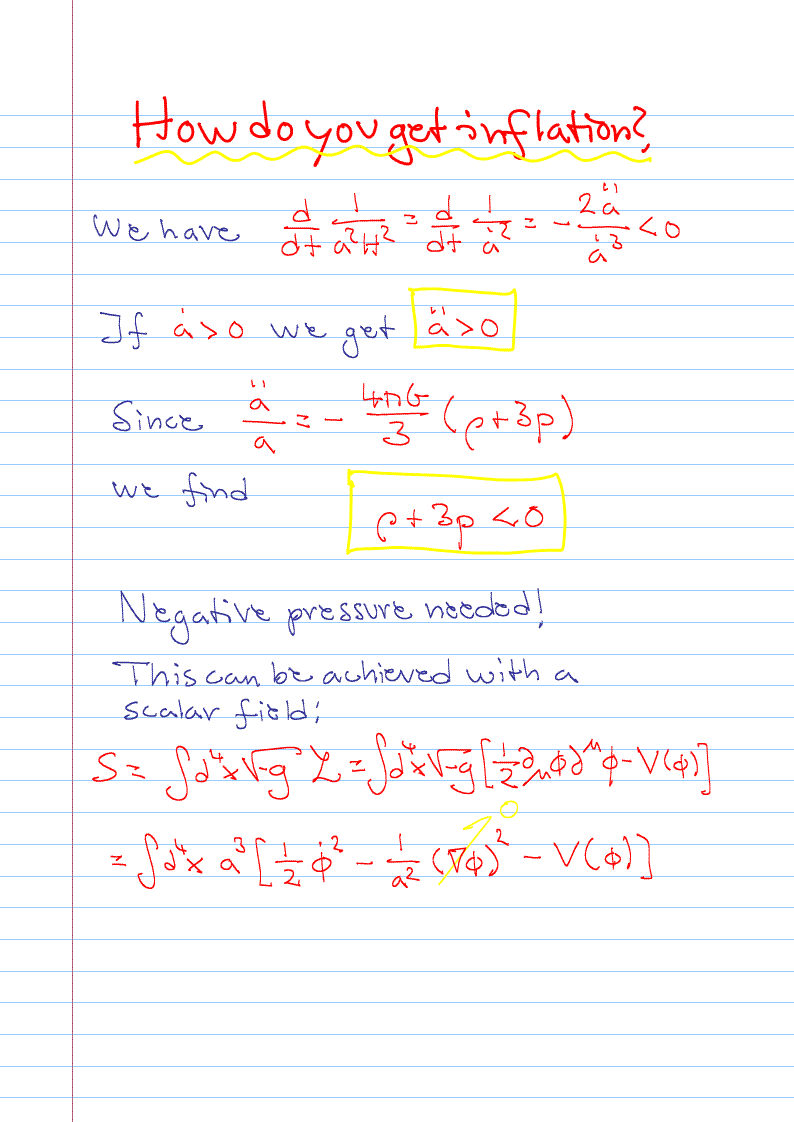 How do you get inflation?
We have d/dt 1/(a²H²) = d/dt 1/ȧ² = - 2ä/ȧ³ < 0
If ȧ > 0 we get ä > 0
Since ä/a = - 4πG/3 (ρ + 3p)
we find ρ + 3p < 0
Negative pressure needed!
This can be achieved with a
scalar field:
S = ∫d⁴x √-g ℒ = ∫d⁴x √-g [1/2 ∂μϕ∂^μϕ - V(ϕ)]
0
= ∫d⁴x a³ [1/2 ϕ̇² - 1/a² (∇ϕ)² - V(ϕ)]